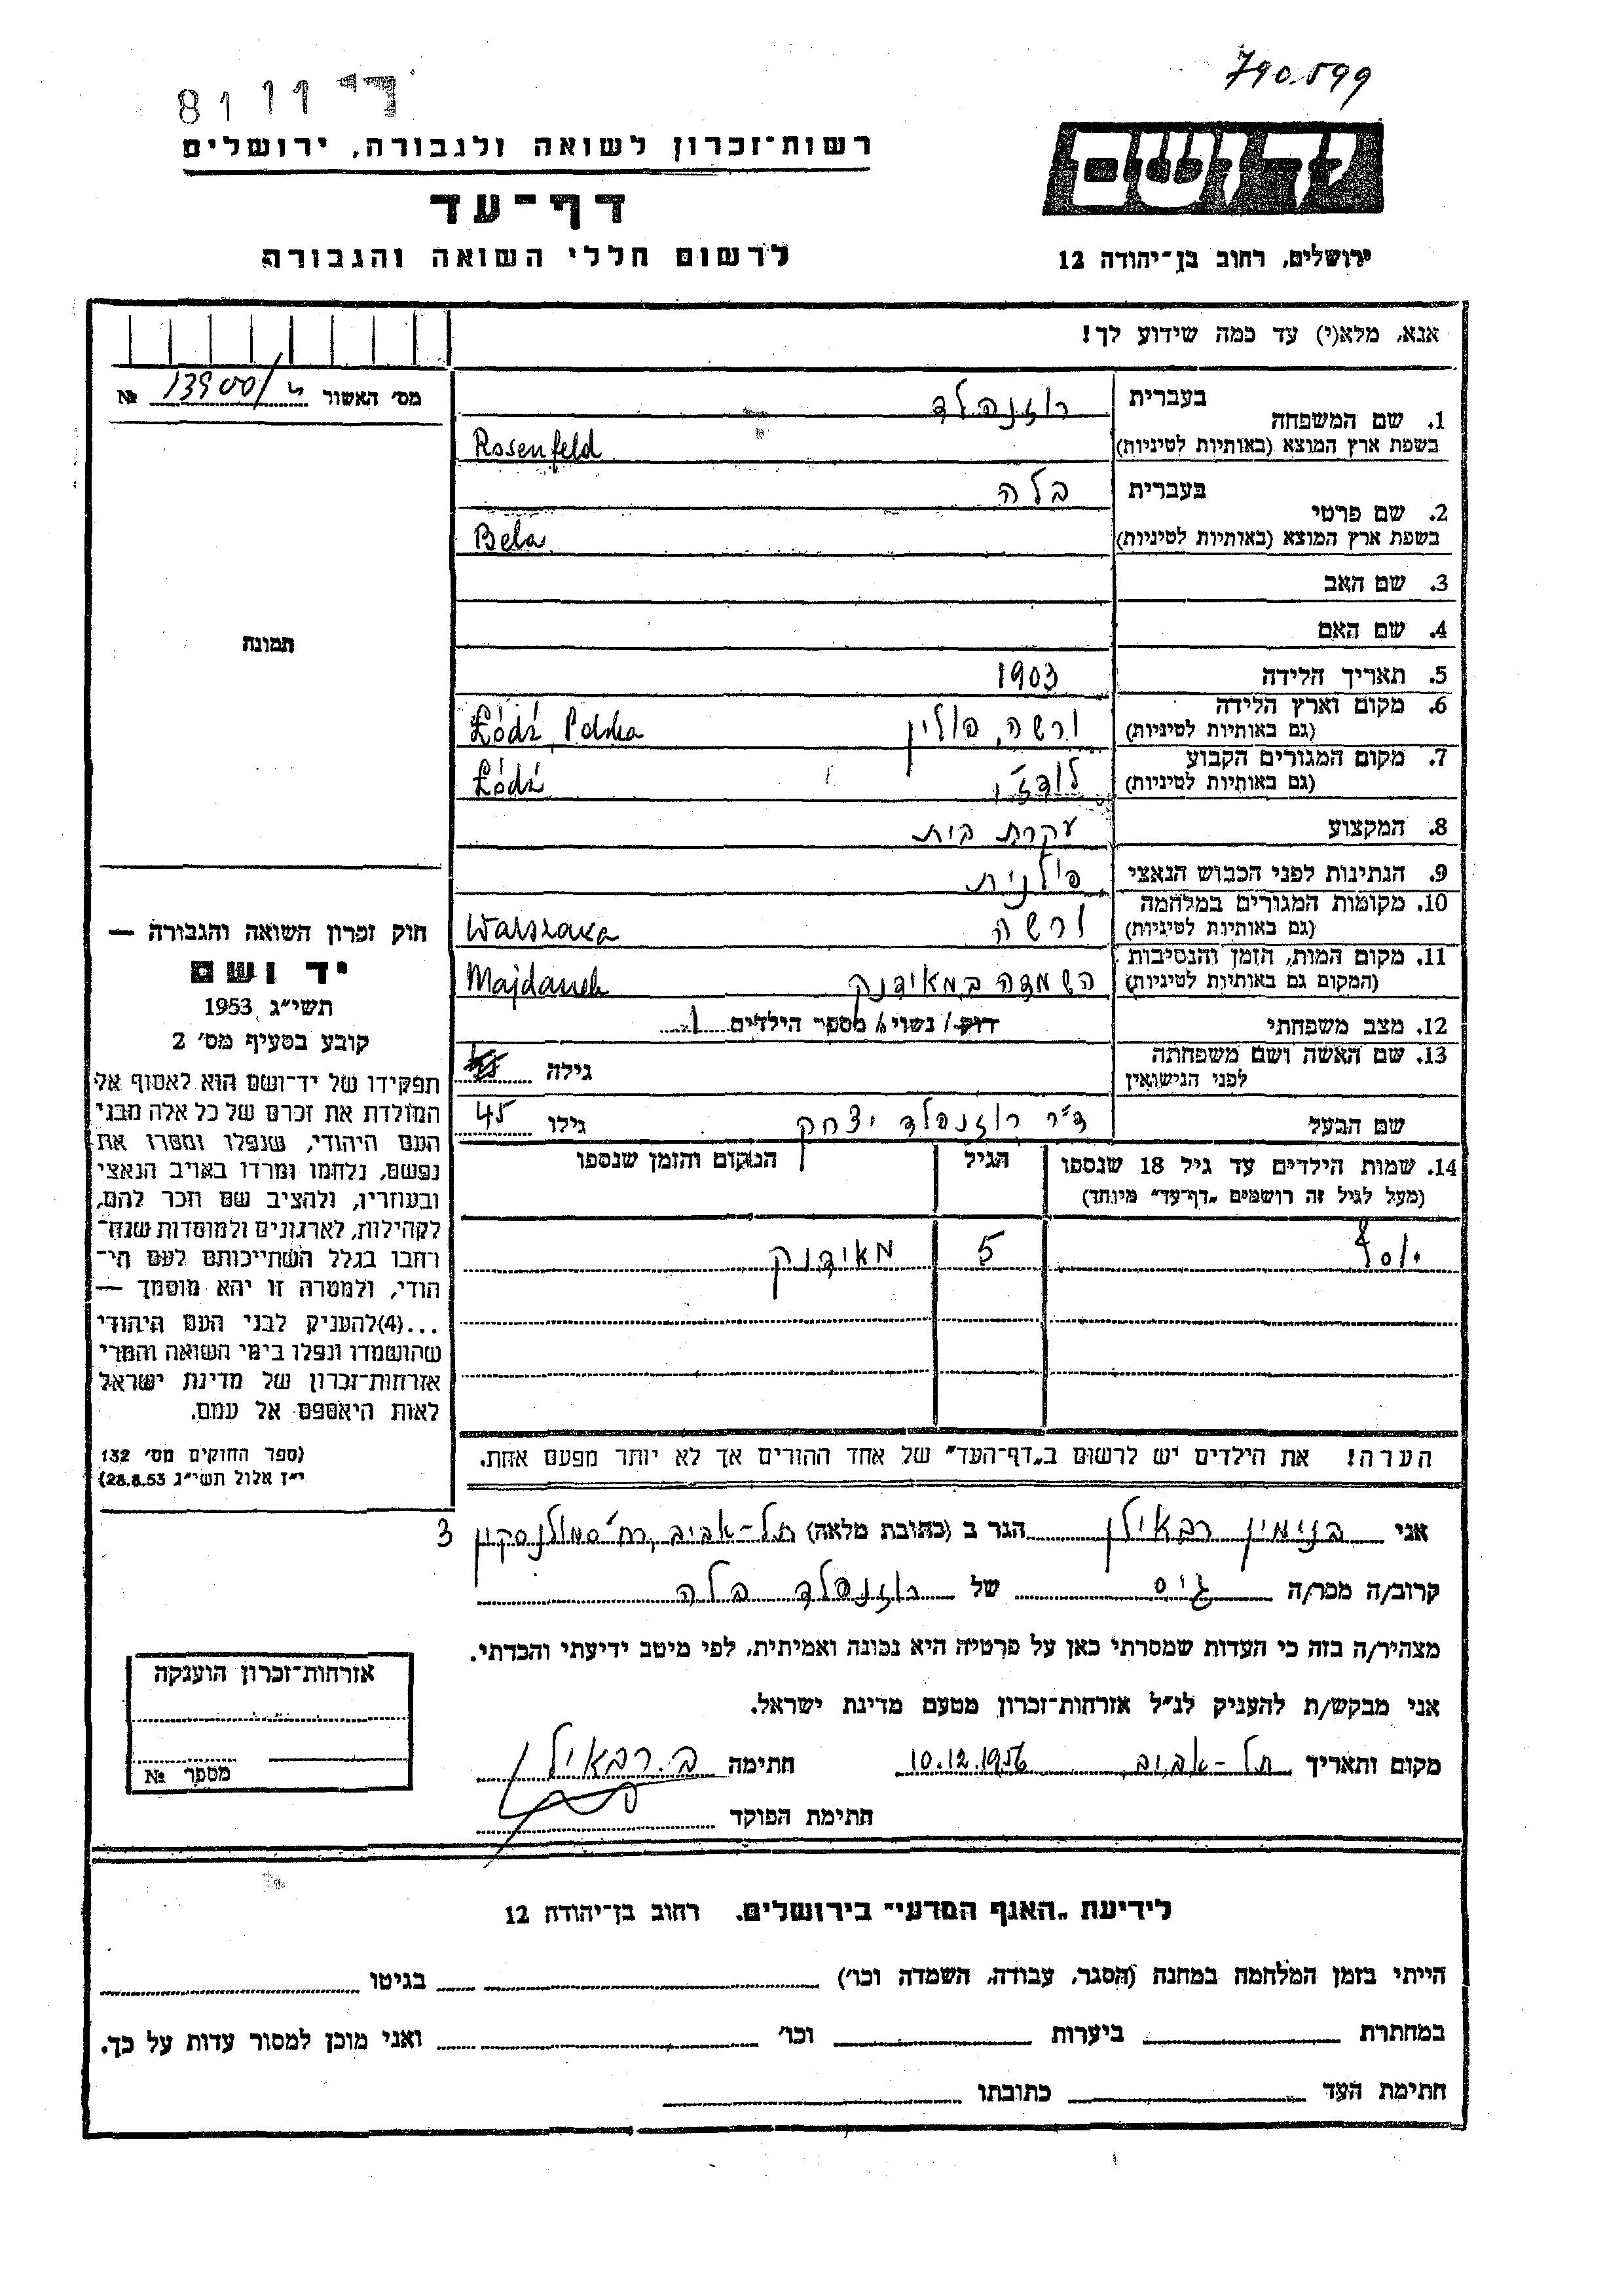 790.599
81 11 די
רשות־זכרון לשואה ולגבורה, ירושלים
ידושם
דף־עד
לרשום חללי השואה והגבורה
ירושלים, רחוב בן־יהודה 12
אנא, מלא(י) עד כמה שידוע לך!
מס' האשור 13900/ №
1. שם המשפחה
בעברית רוזנפלד
בשפת ארץ המוצא (באותיות לטיניות) Rosenfeld
2. שם פרטי
בעברית בלה
בשפת ארץ המוצא (באותיות לטיניות) Bela
3. שם האב
4. שם האם
תמונה
5. תאריך הלידה 1903
6. מקום וארץ הלידה
(גם באותיות לטיניות) ורשה, פולין Łódź, Polska
7. מקום המגורים הקבוע
(גם באותיות לטיניות) לודז' Łódź
8. המקצוע עקרת בית
9. הנתינות לפני הכבוש הנאצי פולנית
10. מקומות המגורים במלחמה
(גם באותיות לטיניות) ורשה Warszawa
11. מקום המות, הזמן והנסיבות
(המקום גם באותיות לטיניות) השמדה במאידנק Majdanek
12. מצב משפחתי רוק/ נשוי/ מספר הילדים 1
13. שם האשה ושם משפחתה
לפני הנישואין גילה
שם הבעל ד"ר רוזנפלד יצחק גילו 45
14. שמות הילדים עד גיל 18 שנספו הגיל המקום והזמן שנספו
(מעל לגיל זה רושמים „דף־עד" מיוחד)
5 מאידנק
הערה! את הילדים יש לרשום ב„דף־העד" של אחד ההורים אך לא יותר מפעם אחת.
חוק זכרון השואה והגבורה —
יד ושם
תשי"ג 1953
קובע בסעיף מס' 2
תפקידו של יד־ושם הוא לאסוף אל
המולדת את זכרם של כל אלה מבני
העם היהודי, שנפלו ומסרו את
נפשם, נלחמו ומרדו באויב הנאצי
ובעוזריו, ולהציב שם וזכר להם,
לקהילות, לארגונים ולמוסדות שנח־
רבו בגלל השתייכותם לעם הי־
הודי, ולמטרה זו יהא מוסמך —
...(4)להעניק לבני העם היהודי
שהושמדו ונפלו בימי השואה והמרי
אזרחות־זכרון של מדינת ישראל
לאות היאספם אל עמם.
(ספר החוקים מס' 132
י"ז אלול תשי"ג 28.8.53)
אני בנימין רבאילן הגר ב (כתובת מלאה) תל-אביב, רח' סמולנסקין 3
קרוב/ה מכר/ה גיס של רוזנפלד בלה
מצהיר/ה בזה כי העדות שמסרתי כאן על פרטיה היא נכונה ואמיתית, לפי מיטב ידיעתי והכרתי.
אני מבקש/ת להעניק לנ"ל אזרחות־זכרון מטעם מדינת ישראל.
מקום ותאריך תל-אביב, 10.12.1956 חתימה ב. רבאילן
חתימת הפוקד
אזרחות־זכרון הוענקה
מספר №
לידיעת „האגף המדעי" בירושלים. רחוב בן־יהודה 12
הייתי בזמן המלחמה במחנה (הסגר, עבודה, השמדה וכו') בגיטו
במחתרת ביערות וכו' ואני מוכן למסור עדות על כך.
חתימת העד כתובתו